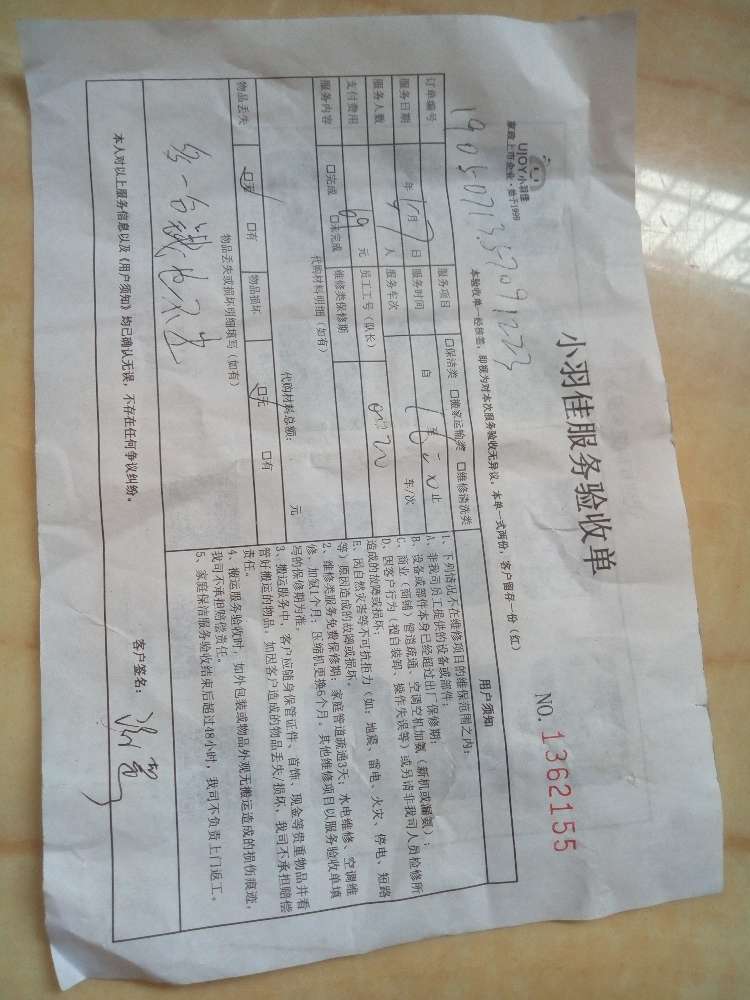 UJOY小羽佳
家政上市企业·始于1999
小羽佳服务验收单
NO. 1362155
本验收单一经核签,即视为对本次服务验收无异议,本单一式两份,客户留存一份(红)
订单编号 服务项目 □保洁类 □搬家运输类 □维修清洗类
服务日期 年 月 日 服务时间 自 止
服务人数 人 服务车次 车/次
支付费用 69 元 员工工号(队长)
服务内容 □完成 □未完成 维修类保修期
代购材料明细(如有)
代购材料总额: 元
物品丢失 □无 □有 物品损坏 □无 □有
物品丢失或损坏明细填写(如有)
用户须知
1、下列情况不在维修项目的维保范围之内:
A、非我司员工提供的设备或部件;
B、设备或部件本身已经超过出厂保修期;
C、商业(商铺)管道疏通、空调空机加氨(新机或漏氨);
D、因客户行为(擅自装卸、操作失误等)或另请非我司人员检修所
造成的故障或损坏;
E、因自然灾害等不可抗拒力(如:地震、雷电、火灾、停电、短路
等)原因造成的故障或损坏。
2、维修类服务免费保修期:家庭管道疏通3天;水电维修、空调维
修、加氨1个月;压缩机更换6个月,其他维修项目以服务验收单填
写的保修期为准。
3、搬运服务中,客户应随身保管证件、首饰、现金等贵重物品并看
管好搬运的物品,如因客户造成的物品丢失/损坏,我司不承担赔偿
责任。
4、搬运服务验收时,如外包装或物品外观无搬运造成的损伤痕迹,
我司不承担赔偿责任。
5、家庭保洁服务验收结束后超过48小时,我司不负责上门返工。
本人对以上服务信息以及《用户须知》均已确认无误,不存在任何争议纠纷。
客户签名: